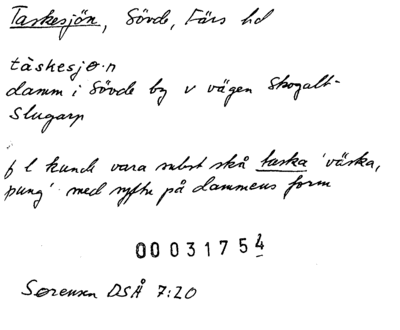 Taskesjön, Sövde, Färs hd
tàskesjø·n
damm i Sövde by v vägen Skogalt-
Slugarp
f l kunde vara subst skå taska 'väska,
pung' med syftn på dammens form
00031754
Sørensen DSÅ 7:20